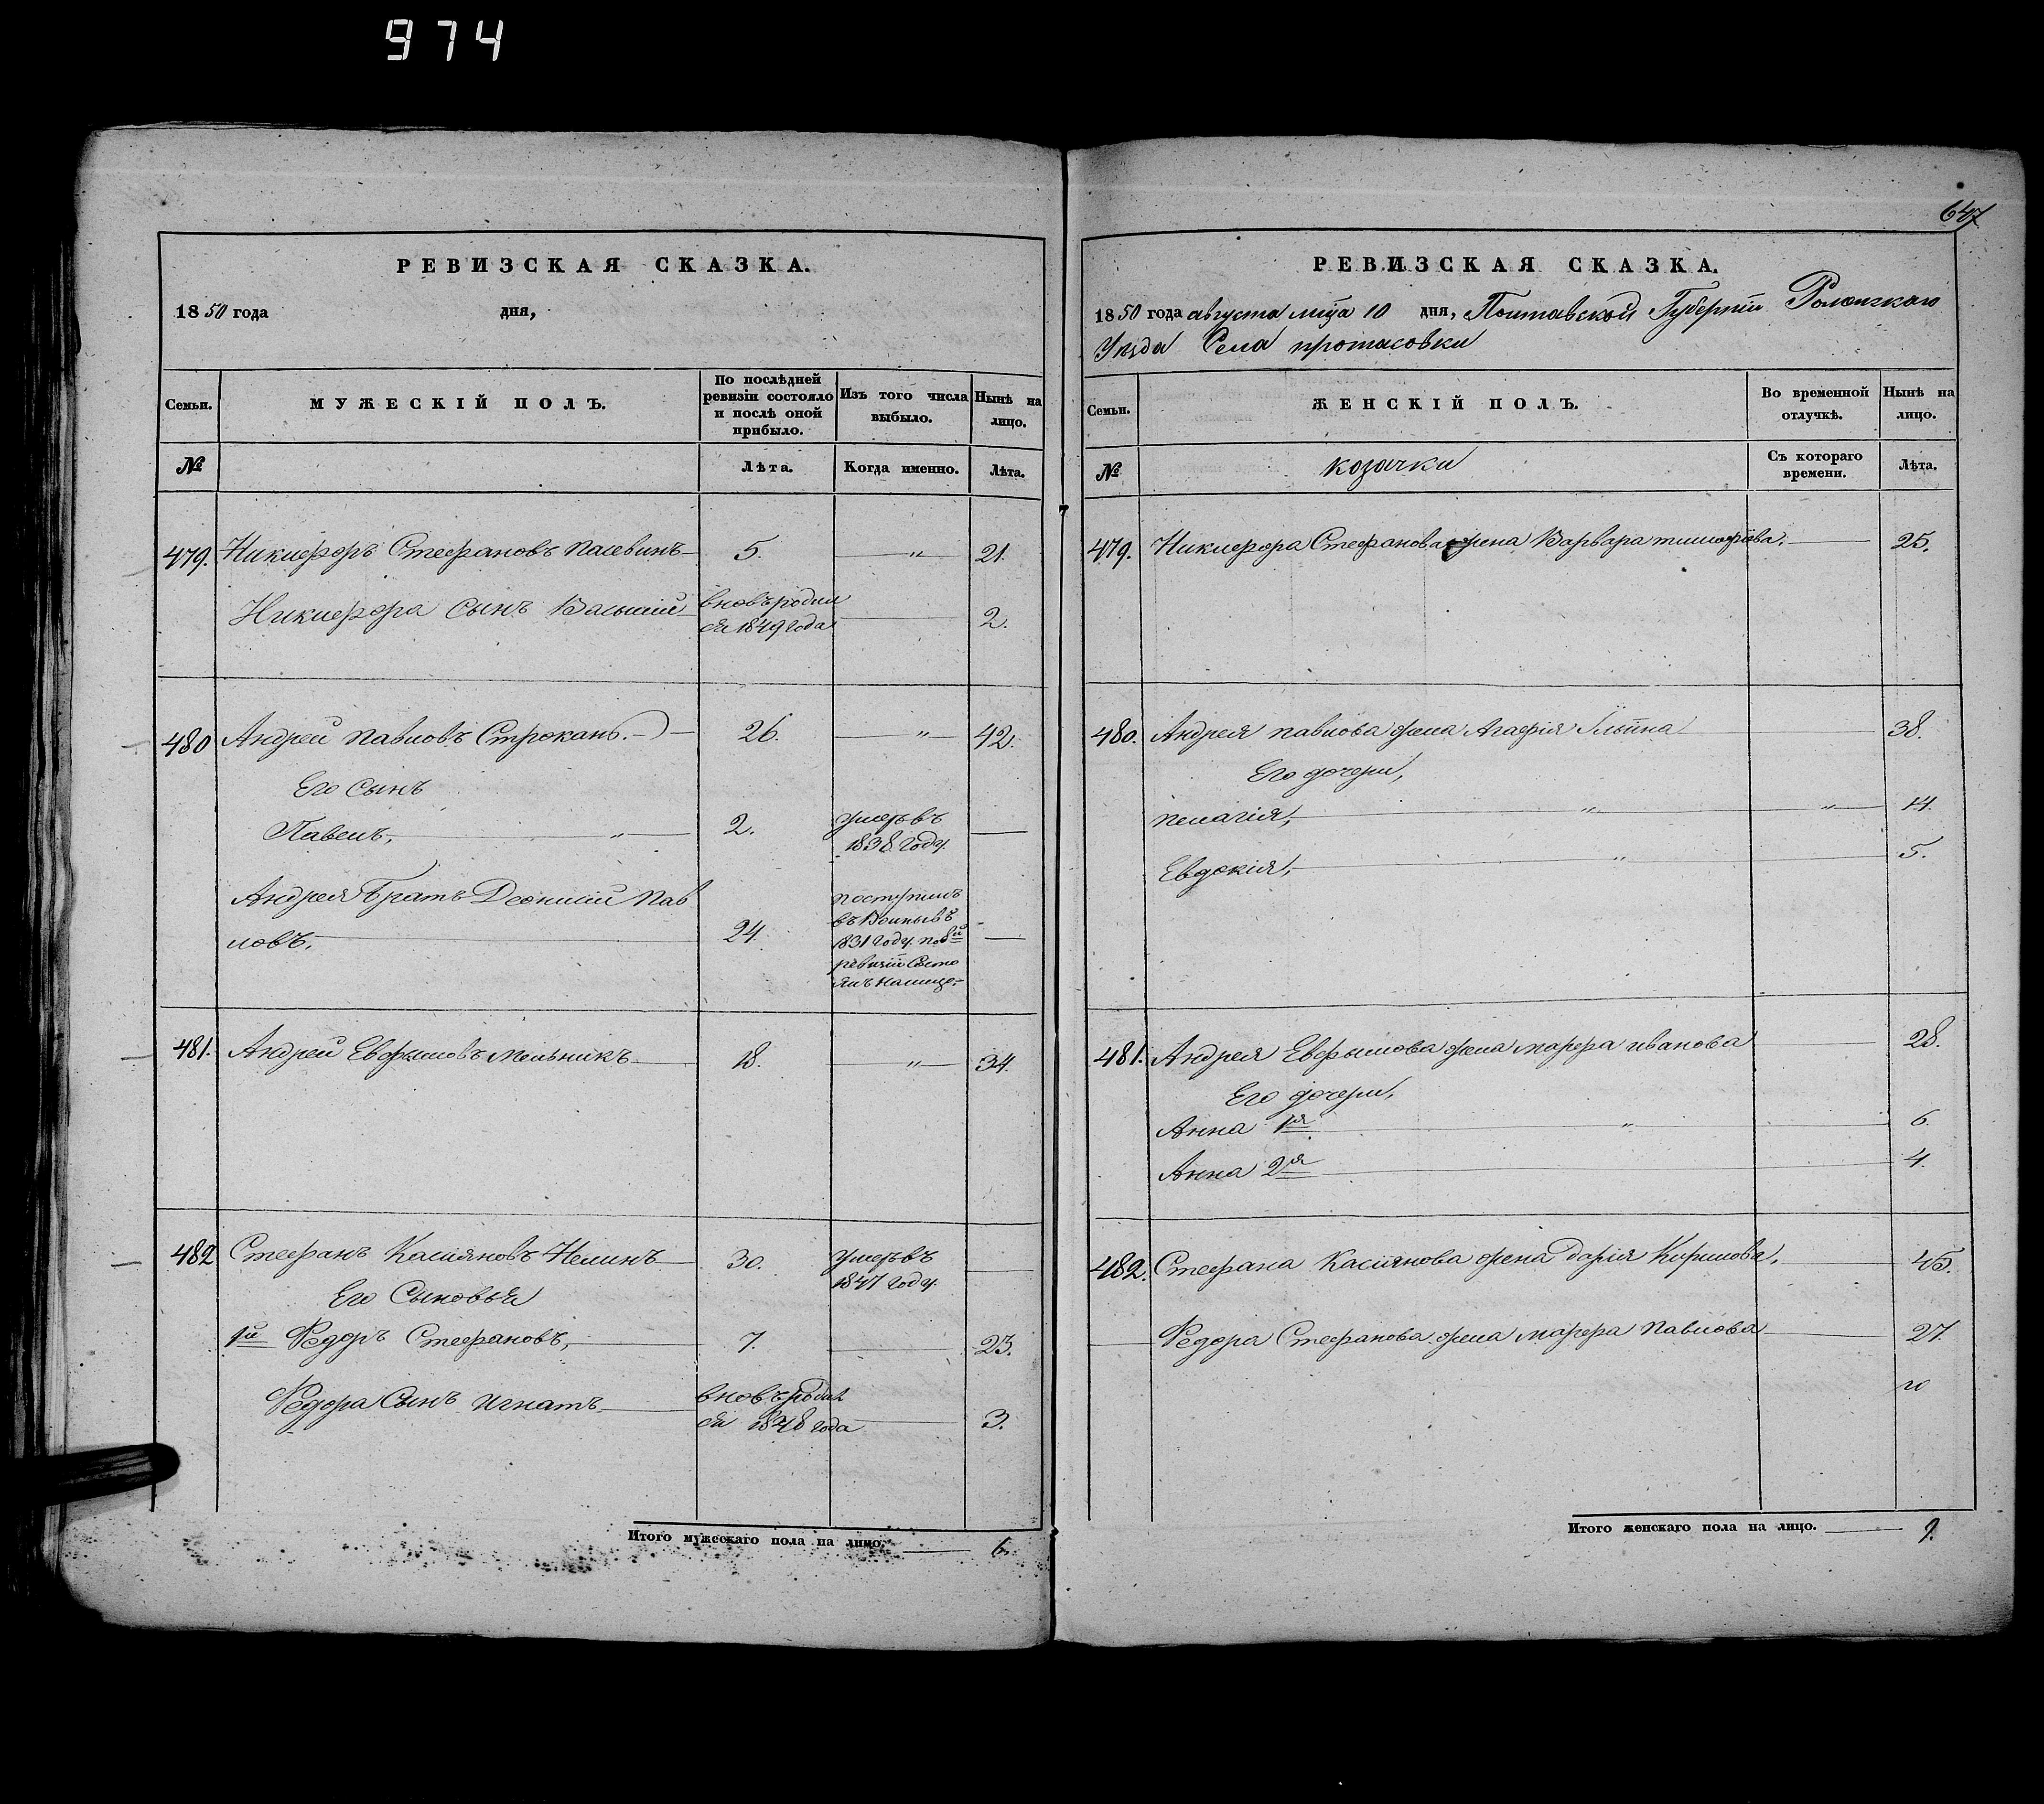 974
РЕВИЗСКАЯ СКАЗКА.
1850 года дня,
Семьи.
МУЖЕСКІЙ ПОЛЪ.
По послѣдней ревизіи состояло и послѣ оной прибыло.
Изъ того числа выбыло.
Нынѣ на лицо.
№
Лѣта.
Когда именно.
Лѣта.
479. Никифоръ Стефановъ 5. „ 21.
Никифора Сынъ Василій вновь роди
ся 1849 года 2.
480 Андрей Павловъ Строкань. 26. „ 42.
Его Сынъ
Павелъ, „ 2. умеръ въ
1838 году.
Андрея Братъ Деонисій Пав
ловъ, 24. поступилъ
въ
1831 году. по 8й
ревизіи Состо
ялъ налице
481. Андрей Евфимовъ Мельникъ 18. „ 34.
482 Стефанъ Касіяновъ 30. умеръ въ
1847 году.
Его Сыновья
1й Федоръ Стефановъ, 7. 23.
Федора Сынъ Игнатъ вновь родил
ся 1848 года 3.
Итого мужескаго пола на лицо. 6.
647
РЕВИЗСКАЯ СКАЗКА.
1850 года августа мца 10 дня, Полтавской Губерніи Роменскаго
Уѣзда Села протасовки
Семьи.
ЖЕНСКІЙ ПОЛЪ.
Во временной отлучкѣ.
Нынѣ на лицо.
№
козачки
Съ котораго времени.
Лѣта.
479. Никифора Стефанова жена Варвара тимофѣева. 25.
480. Андрея павлова жена Агафія Ильина 38.
Его дочери,
пелагія, „ „ 14.
Евдокія, „ 5.
481. Андрея Евфимова жена марфа иванова 28.
Его дочери,
Анна 1я „ 6.
Анна 2я 4.
482. Стефана Касіянова жена Дарія Кирилова, 45.
Федора Стефанова жена марфа Павлова 27.
Итого женскаго пола на лицо. 9.